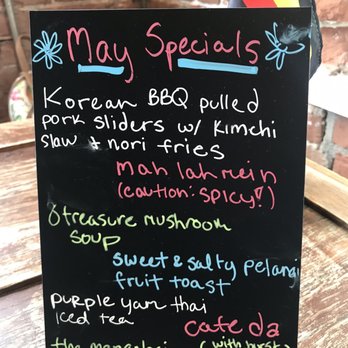 May Specials
Korean BBQ pulled
pork sliders w/ Kimchi
slaw & nori fries
mah lah mein
(caution: spicy!)
8 treasure mushroom
soup
sweet & salty pelangi
fruit toast
purple yam thai
iced tea
cafe da
(with burst
the